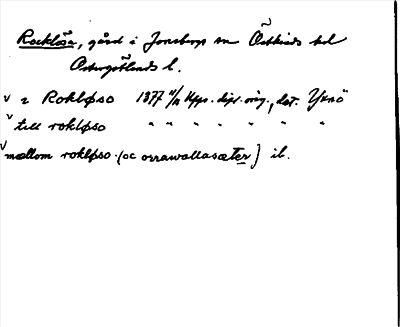 Rocklösa, gård i Jonsbergs sn Östkinds hd
Östergötlands l.
v i Rokløso 1377 11/12 Upps. dipl. orig., dat. Yxnö
v till rokløso " " " " " "
v mællom rokløso (oc orrawallasæter) il.